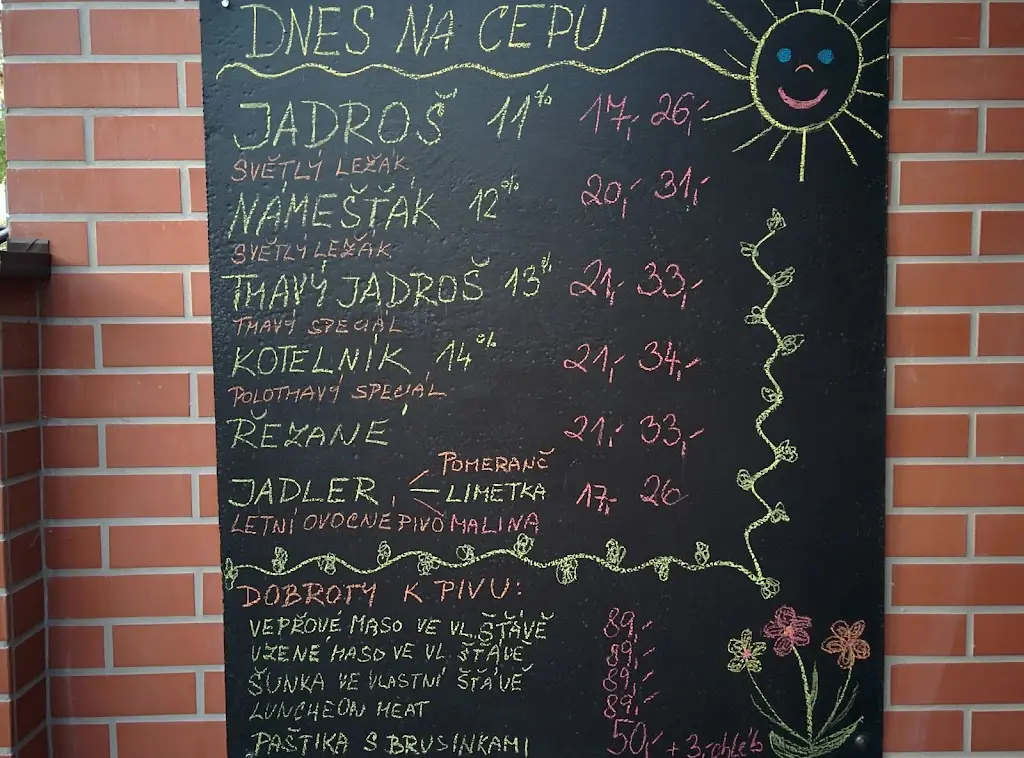 DNES NA ČEPU
JADROŠ 11% 17,- 26,-
SVĚTLÝ LEŽÁK
NÁMEŠŤÁK 12% 20,- 31,-
SVĚTLÝ LEŽÁK
TMAVÝ JADROŠ 13% 21,- 33,-
TMAVÝ SPECIÁL
KOTELNÍK 14% 21,- 34,-
POLOTMAVÝ SPECIÁL
ŘEZANÉ 21,- 33,-
POMERANČ
JADLER LIMETKA 17,- 26
LETNÍ OVOCNÉ PIVO MALINA
DOBROTY K PIVU:
VEPŘOVÉ MASO VE VL. ŠŤÁVĚ 89,-
UZENÉ MASO VE VL. ŠŤÁVĚ 89,-
ŠUNKA VE VLASTNÍ ŠŤÁVĚ 89,-
LUNCHEON MEAT 89,-
PAŠTIKA S BRUSINKAMI 50,- + 3,- chléb